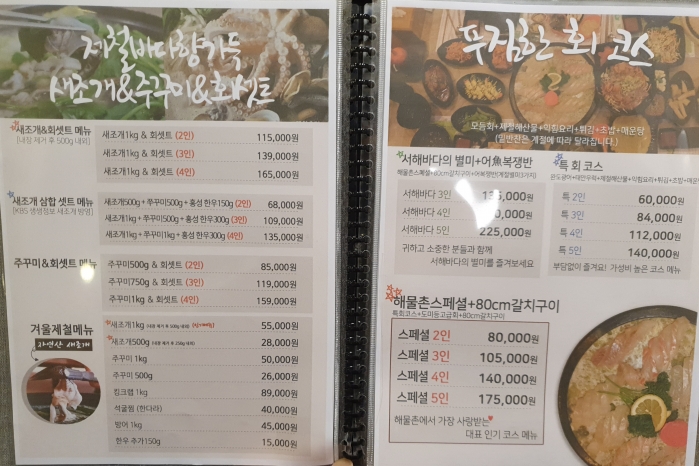 제철바다향가득
새조개&주꾸미&회셋트
새조개&회셋트 메뉴
[내장 제거 후 500g 내외]
새조개1kg & 회셋트 (2인) 115,000원
새조개1kg & 회셋트 (3인) 139,000원
새조개1kg & 회셋트 (4인) 165,000원
새조개 삼합 셋트 메뉴
[KBS 생생정보 새조개 방영]
새조개500g + 쭈꾸미500g + 홍성 한우150g (2인) 68,000원
새조개1kg + 쭈꾸미500g + 홍성 한우300g (3인) 109,000원
새조개1kg + 쭈꾸미1kg + 홍성 한우300g (4인) 135,000원
주꾸미&회셋트 메뉴
주꾸미500g & 회셋트 (2인) 85,000원
주꾸미750g & 회셋트 (3인) 119,000원
주꾸미1kg & 회셋트 (4인) 159,000원
겨울제철메뉴
자연산 새조개
새조개1kg (내장 제거 후 500g 내외) 55,000원
새조개500g (내장 제거 후 250g 내외) 28,000원
주꾸미 1kg 50,000원
주꾸미 500g 26,000원
킹크랩 1kg 89,000원
석굴찜 (한다라) 40,000원
방어 1kg 45,000원
한우 추가150g 15,000원
푸짐한 회 코스
모듬회+제철해산물+막힘요리+튀김+초밥+매운탕
(밑반찬은 계절에 따라 달라집니다.)
서해바다의 별미+어魚복쟁반
서해바다 3인 135,000원
서해바다 4인
서해바다 5인 225,000원
귀하고 소중한 분들과 함께
서해바다의 별미를 즐겨보세요
특 회 코스
특 2인 60,000원
특 3인 84,000원
특 4인 112,000원
특 5인 140,000원
부담없이 즐겨요! 가성비 높은 코스 메뉴
해물촌스페셜+80cm갈치구이
특회코스+도미등고급회+80cm갈치구이
스페셜 2인 80,000원
스페셜 3인 105,000원
스페셜 4인 140,000원
스페셜 5인 175,000원
해물촌에서 가장 사랑받는
대표 인기 코스 메뉴